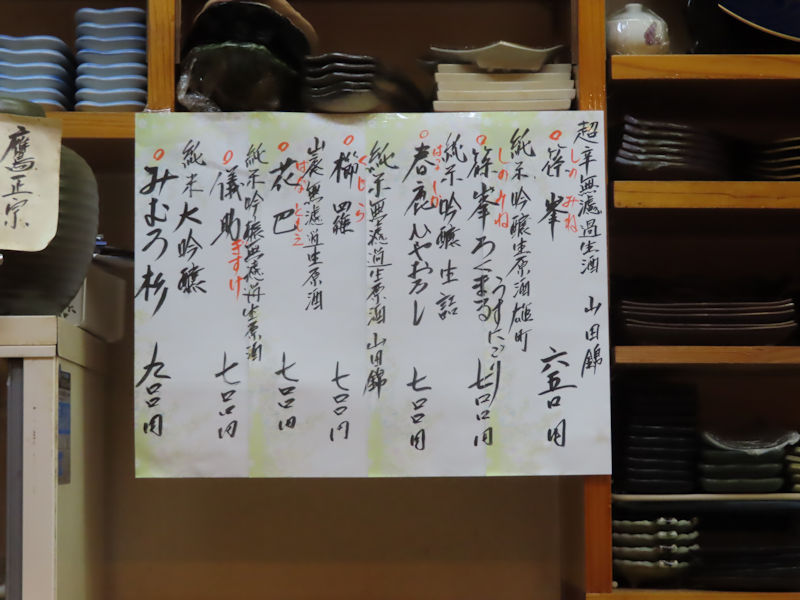 超辛無濾過生酒 山田錦
しの みね
篠峯 六五〇円
純米吟醸生原酒雄町
しのみね
篠峯ろくまる うすにごり 七〇〇円
純米吟醸生詰
はるしか
春鹿ひやおろし 七〇〇円
純米無濾過生原酒 山田錦
くじら
櫛羅 七〇〇円
山廃無濾過生原酒
はな ともえ
花巴 七〇〇円
純米吟醸無濾過生原酒
儀助 ぎすけ 七〇〇円
純米大吟醸
みむろ杉 九〇〇円
鷹正宗